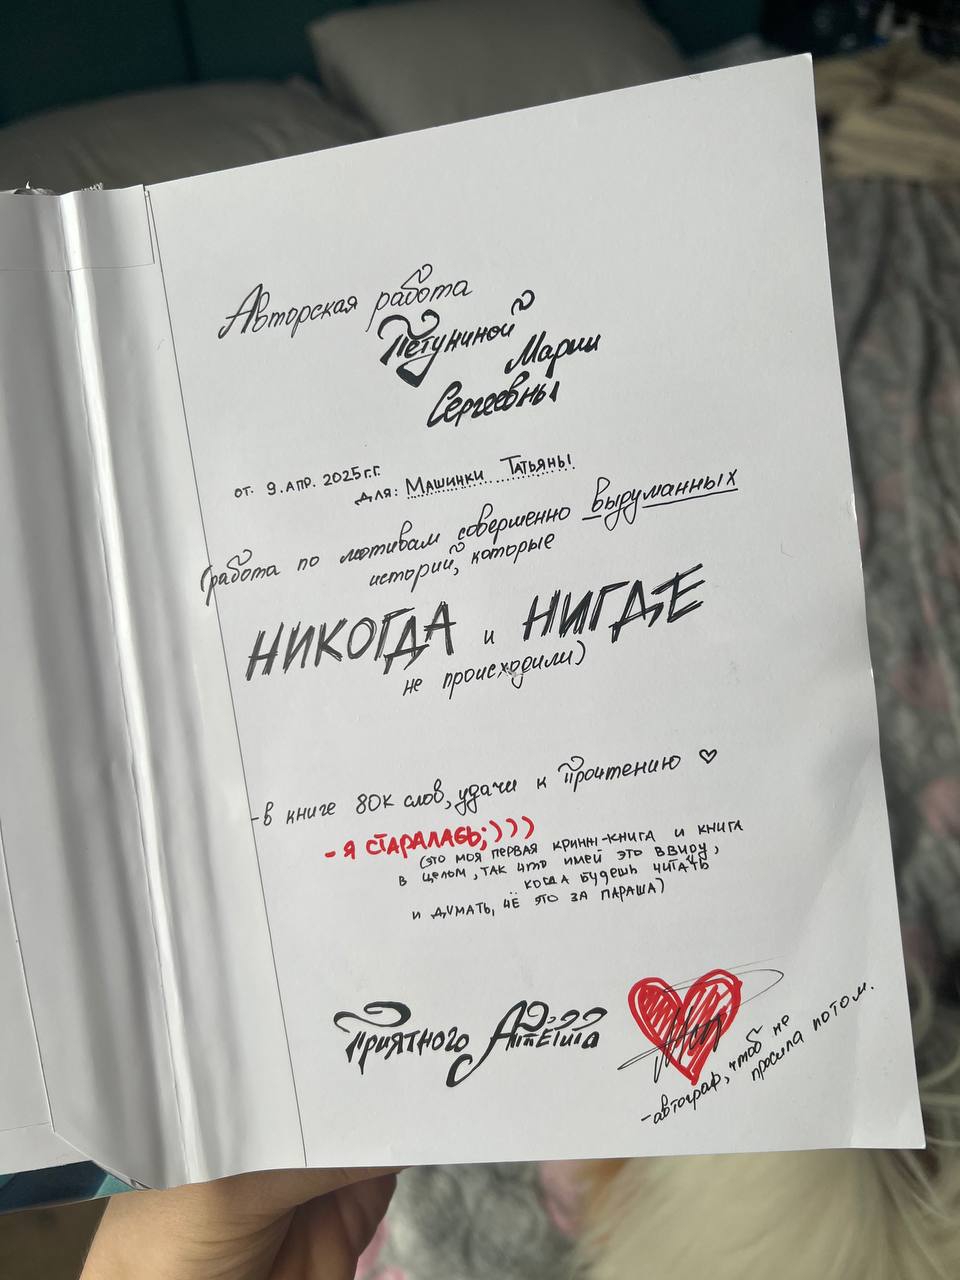 Авторская работа
Петуниной
Марии
Сергеевны
от. 9. апр. 2025 г.г.
для: Машинки Татьяны
(работа по мотивам совершенно выдуманных
историй, которые
НИКОГДА и НИГДЕ
не происходили)
- в книге 80к слов, удачи к прочтению ♡
- Я СТАРАЛАСЬ;)))
(это моя первая кринж-книга и книга
в целом, так что имей это ввиду,
когда будешь читать
и думать, чё это за параша)
Приятного Аппетита
- автограф, чтоб не
просила потом.